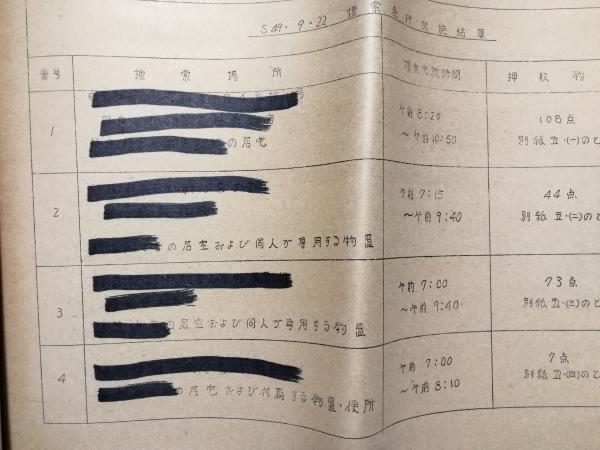 S49.9.22 捜索差押実施結果
番号 捜索場所 捜索実施時間 押収物
1 の居宅 午前8:20 ～午前10:50 108点 別紙五・(一)のと
2 の居室および同人が専用する物置 午前7:15 ～午前9:40 44点 別紙五・(二)のと
3 の居室および同人が専用する物置 午前7:00 ～午前9:40 73点 別紙五・(三)のと
4 の居宅および付属する物置・便所 午前7:00 ～午前8:10 7点 別紙五・(四)のと